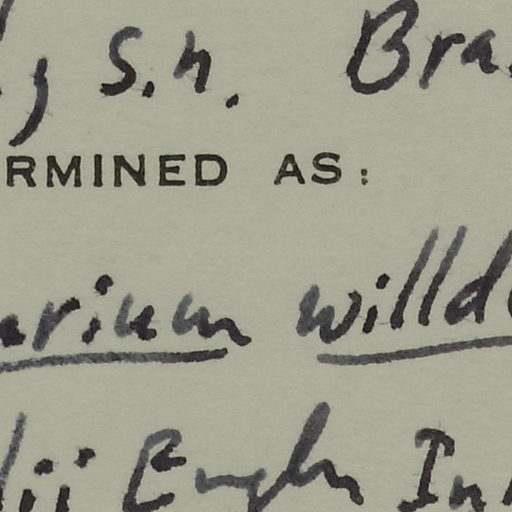 , s.n. Bra
RMINED AS:
arium willd
ii Engler In